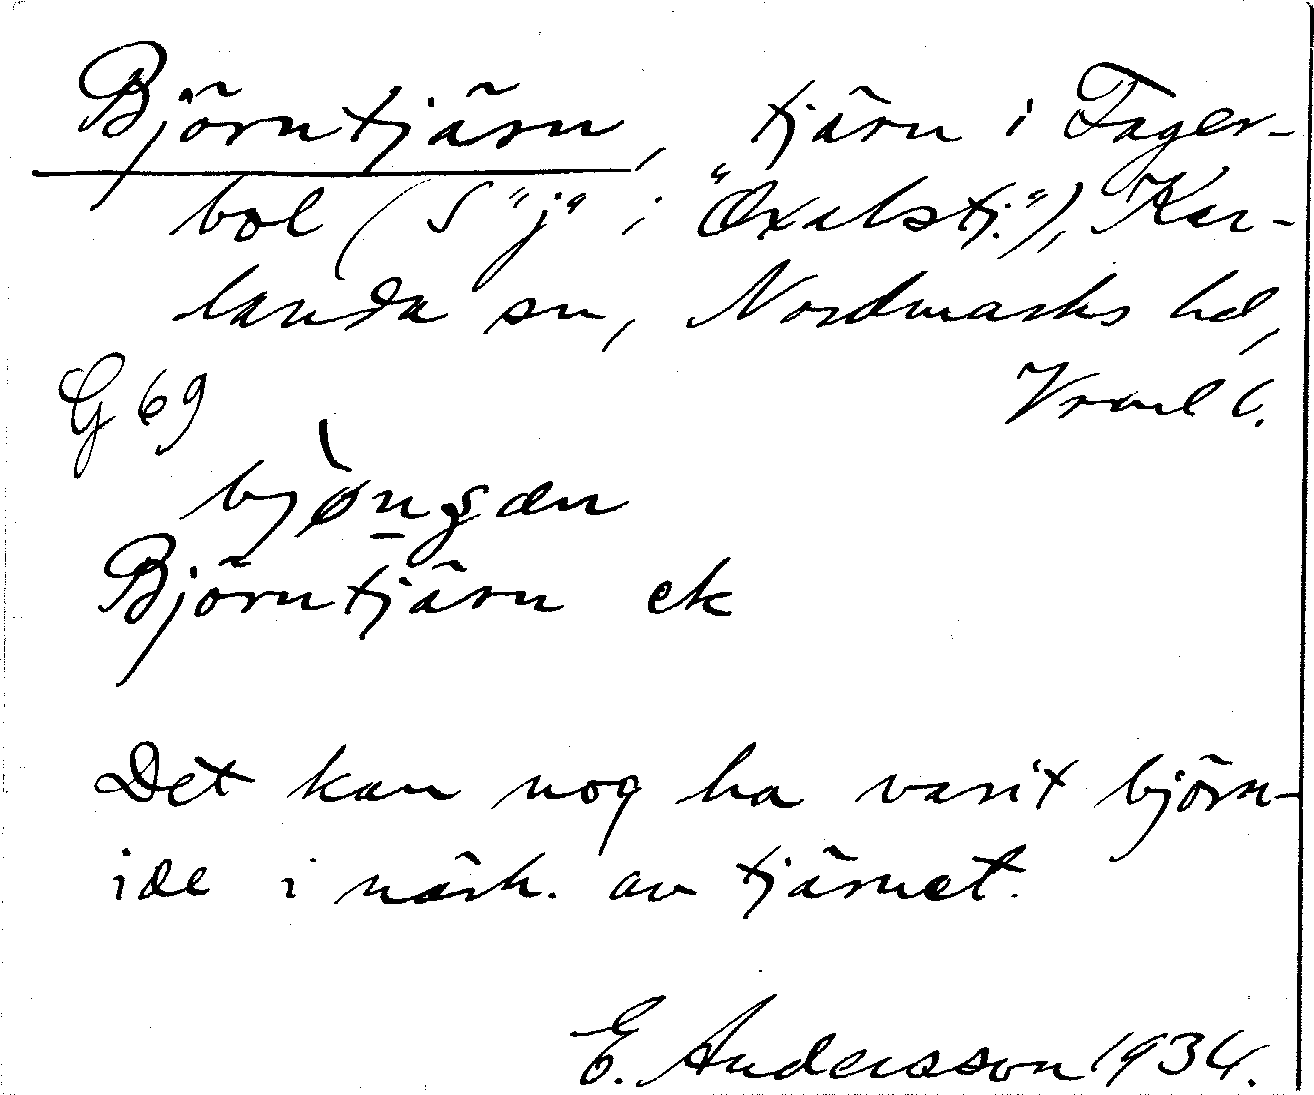 Björntjärn, tjärn i Fager-
bol (S "j" i "Öxalstj."), Kar-
landa sn, Nordmarks hd,
G 69 Vrml l.
bjønsæn
Björntjärn ek
Det kan nog ha varit björn-
ide i närh. av tjärnet.
E. Andersson 1934.